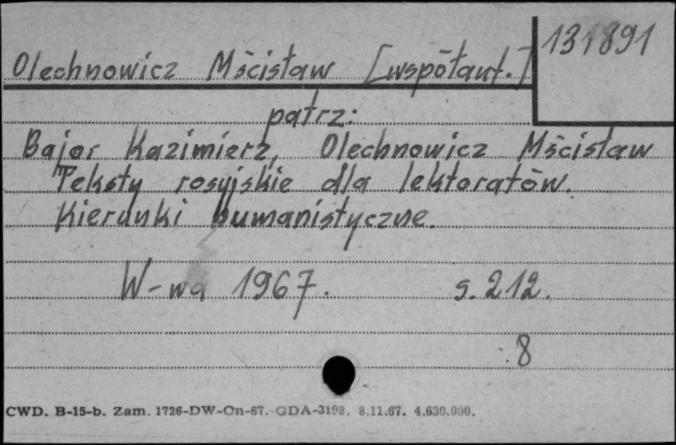 131891
Olechnowicz Mścisław [współaut.]
patrz:
Bajor Kazimierz, Olechnowicz Mścisław
Teksty rosyjskie dla lektoratów.
Kierunki humanistyczne.
W-wa 1967. s. 212.
8
CWD. B-15-b. Zam. 1726-DW-On-67. GDA-3198. 8.11.67. 4.630.000.